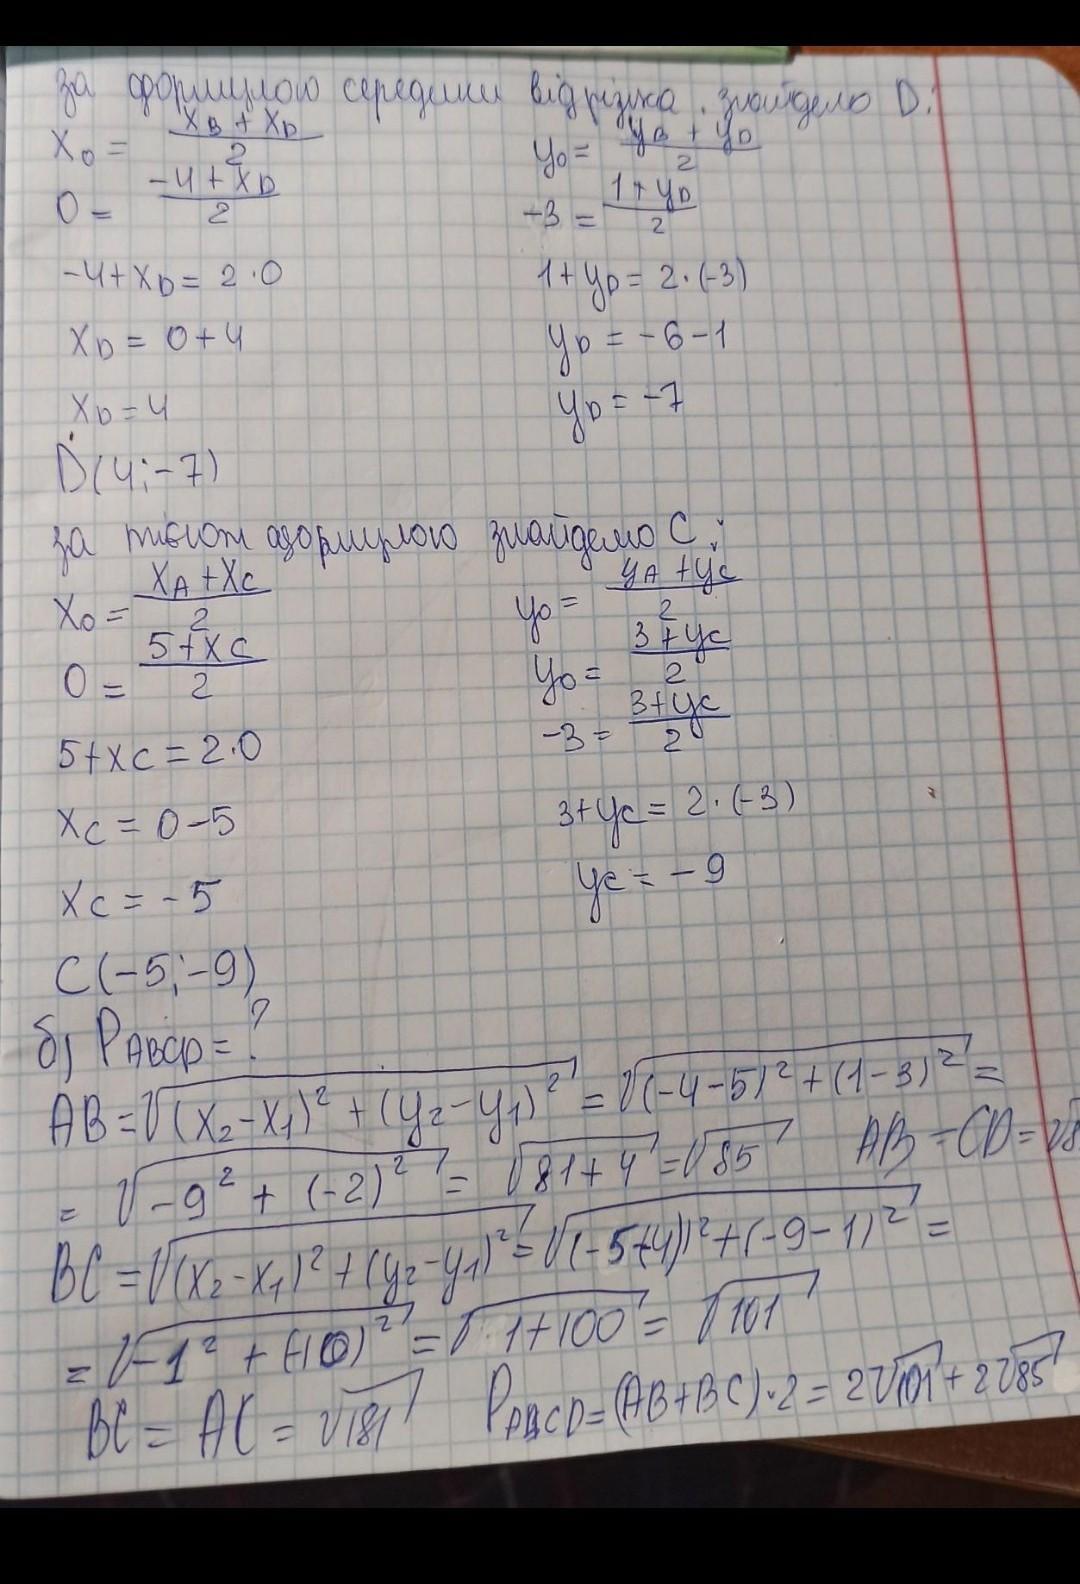 за формулою середини відрізка знайдемо D:
x₀ = (x_B + x_D)/2   y₀ = (y_B + y_D)/2
0 = (-4 + x_D)/2   -3 = (1 + y_D)/2
-4 + x_D = 2·0   1 + y_D = 2·(-3)
x_D = 0 + 4   y_D = -6 - 1
x_D = 4   y_D = -7
D(4; -7)
за формулою знайдемо C:
x₀ = (x_A + x_C)/2   y₀ = (y_A + y_C)/2
0 = (5 + x_C)/2   y₀ = (3 + y_C)/2
-3 = (3 + y_C)/2
5 + x_C = 2·0   3 + y_C = 2·(-3)
x_C = 0 - 5   y_C = -9
x_C = -5
C(-5; -9)
б) P_ABCD = ?
AB = √((x₂ - x₁)² + (y₂ - y₁)²) = √((-4 - 5)² + (1 - 3)²) =
= √(-9² + (-2)²) = √(81 + 4) = √85   AB = CD = √8
BC = √((x₂ - x₁)² + (y₂ - y₁)²) = √((-5+4))² + (-9 - 1)²) =
= √(-1² + (-10)²) = √(1 + 100) = √101
BC = AC = √181   P_ABCD = (AB + BC)·2 = 2√101 + 2√85